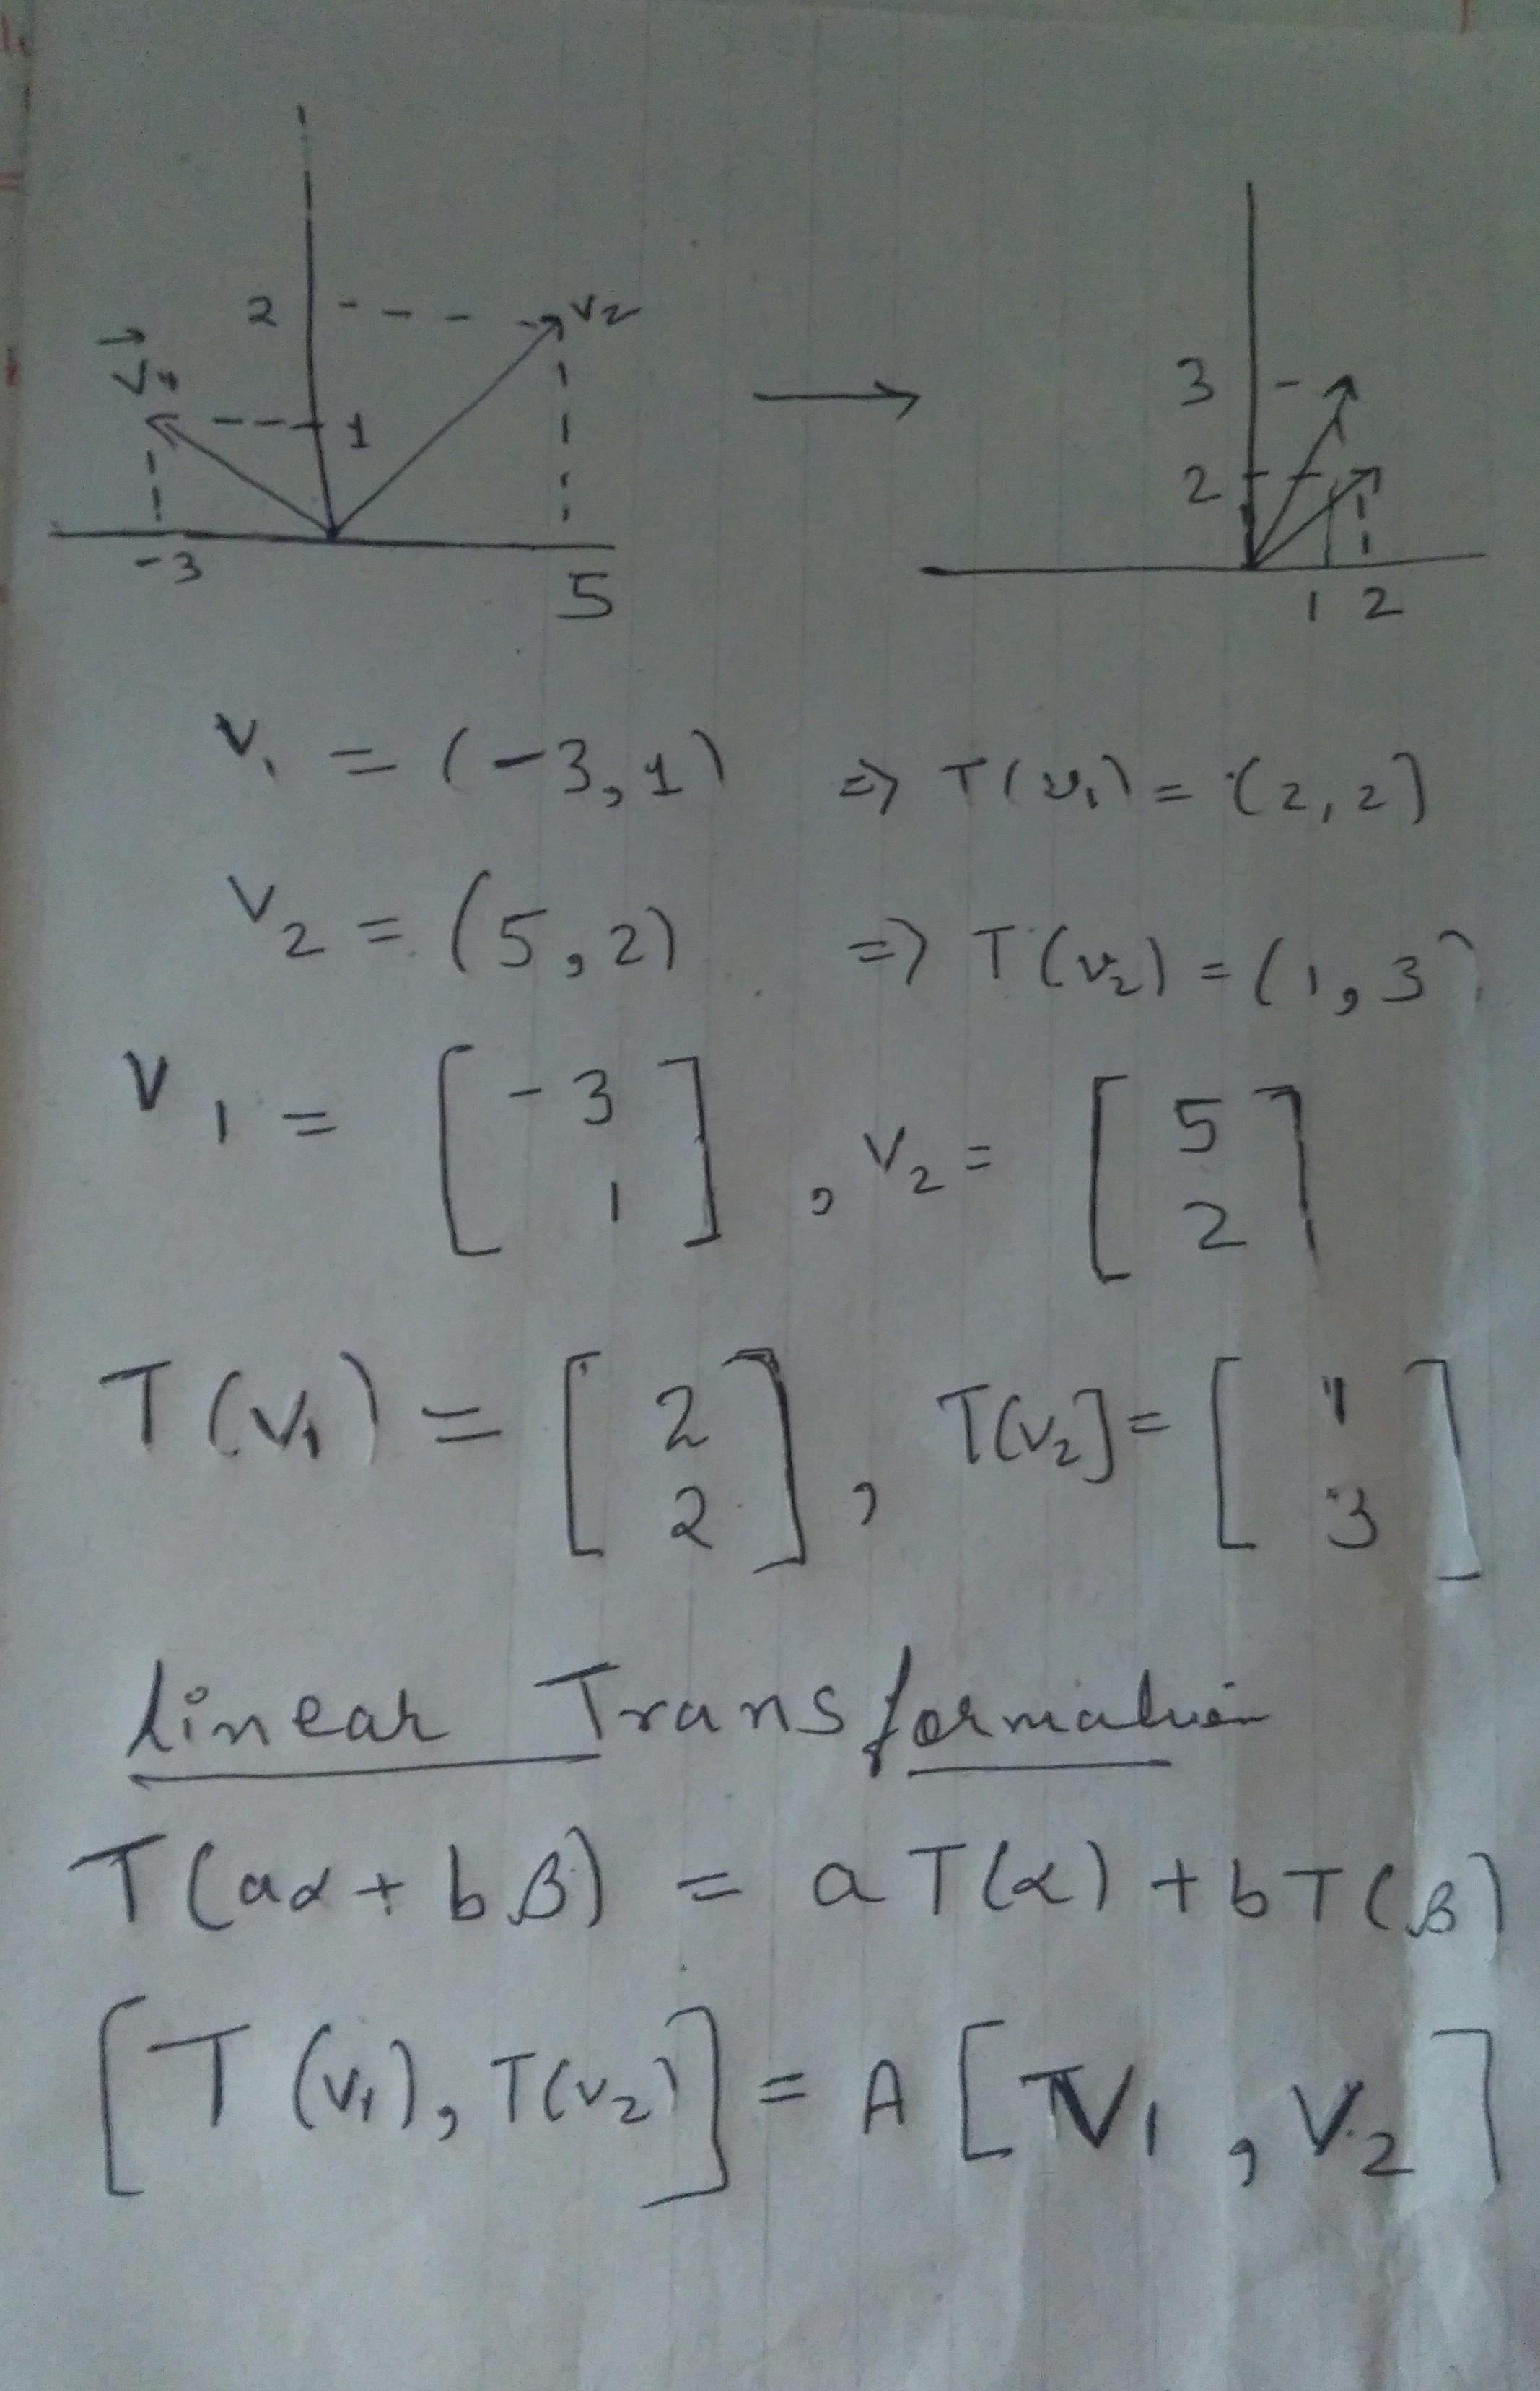 2 v2
v⃗1 1
-3 5
3
2
1 2
v1 = (-3,1) => T(v1) = (2,2)
v2 = (5,2) => T(v2) = (1,3)
v1 = [-3 1], v2 = [5 2]
T(v1) = [2 2], T(v2] = [1 3]
Linear Transformation
T(aα + bβ) = a T(α) + b T(β)
[T(v1), T(v2)] = A [V1, V2]